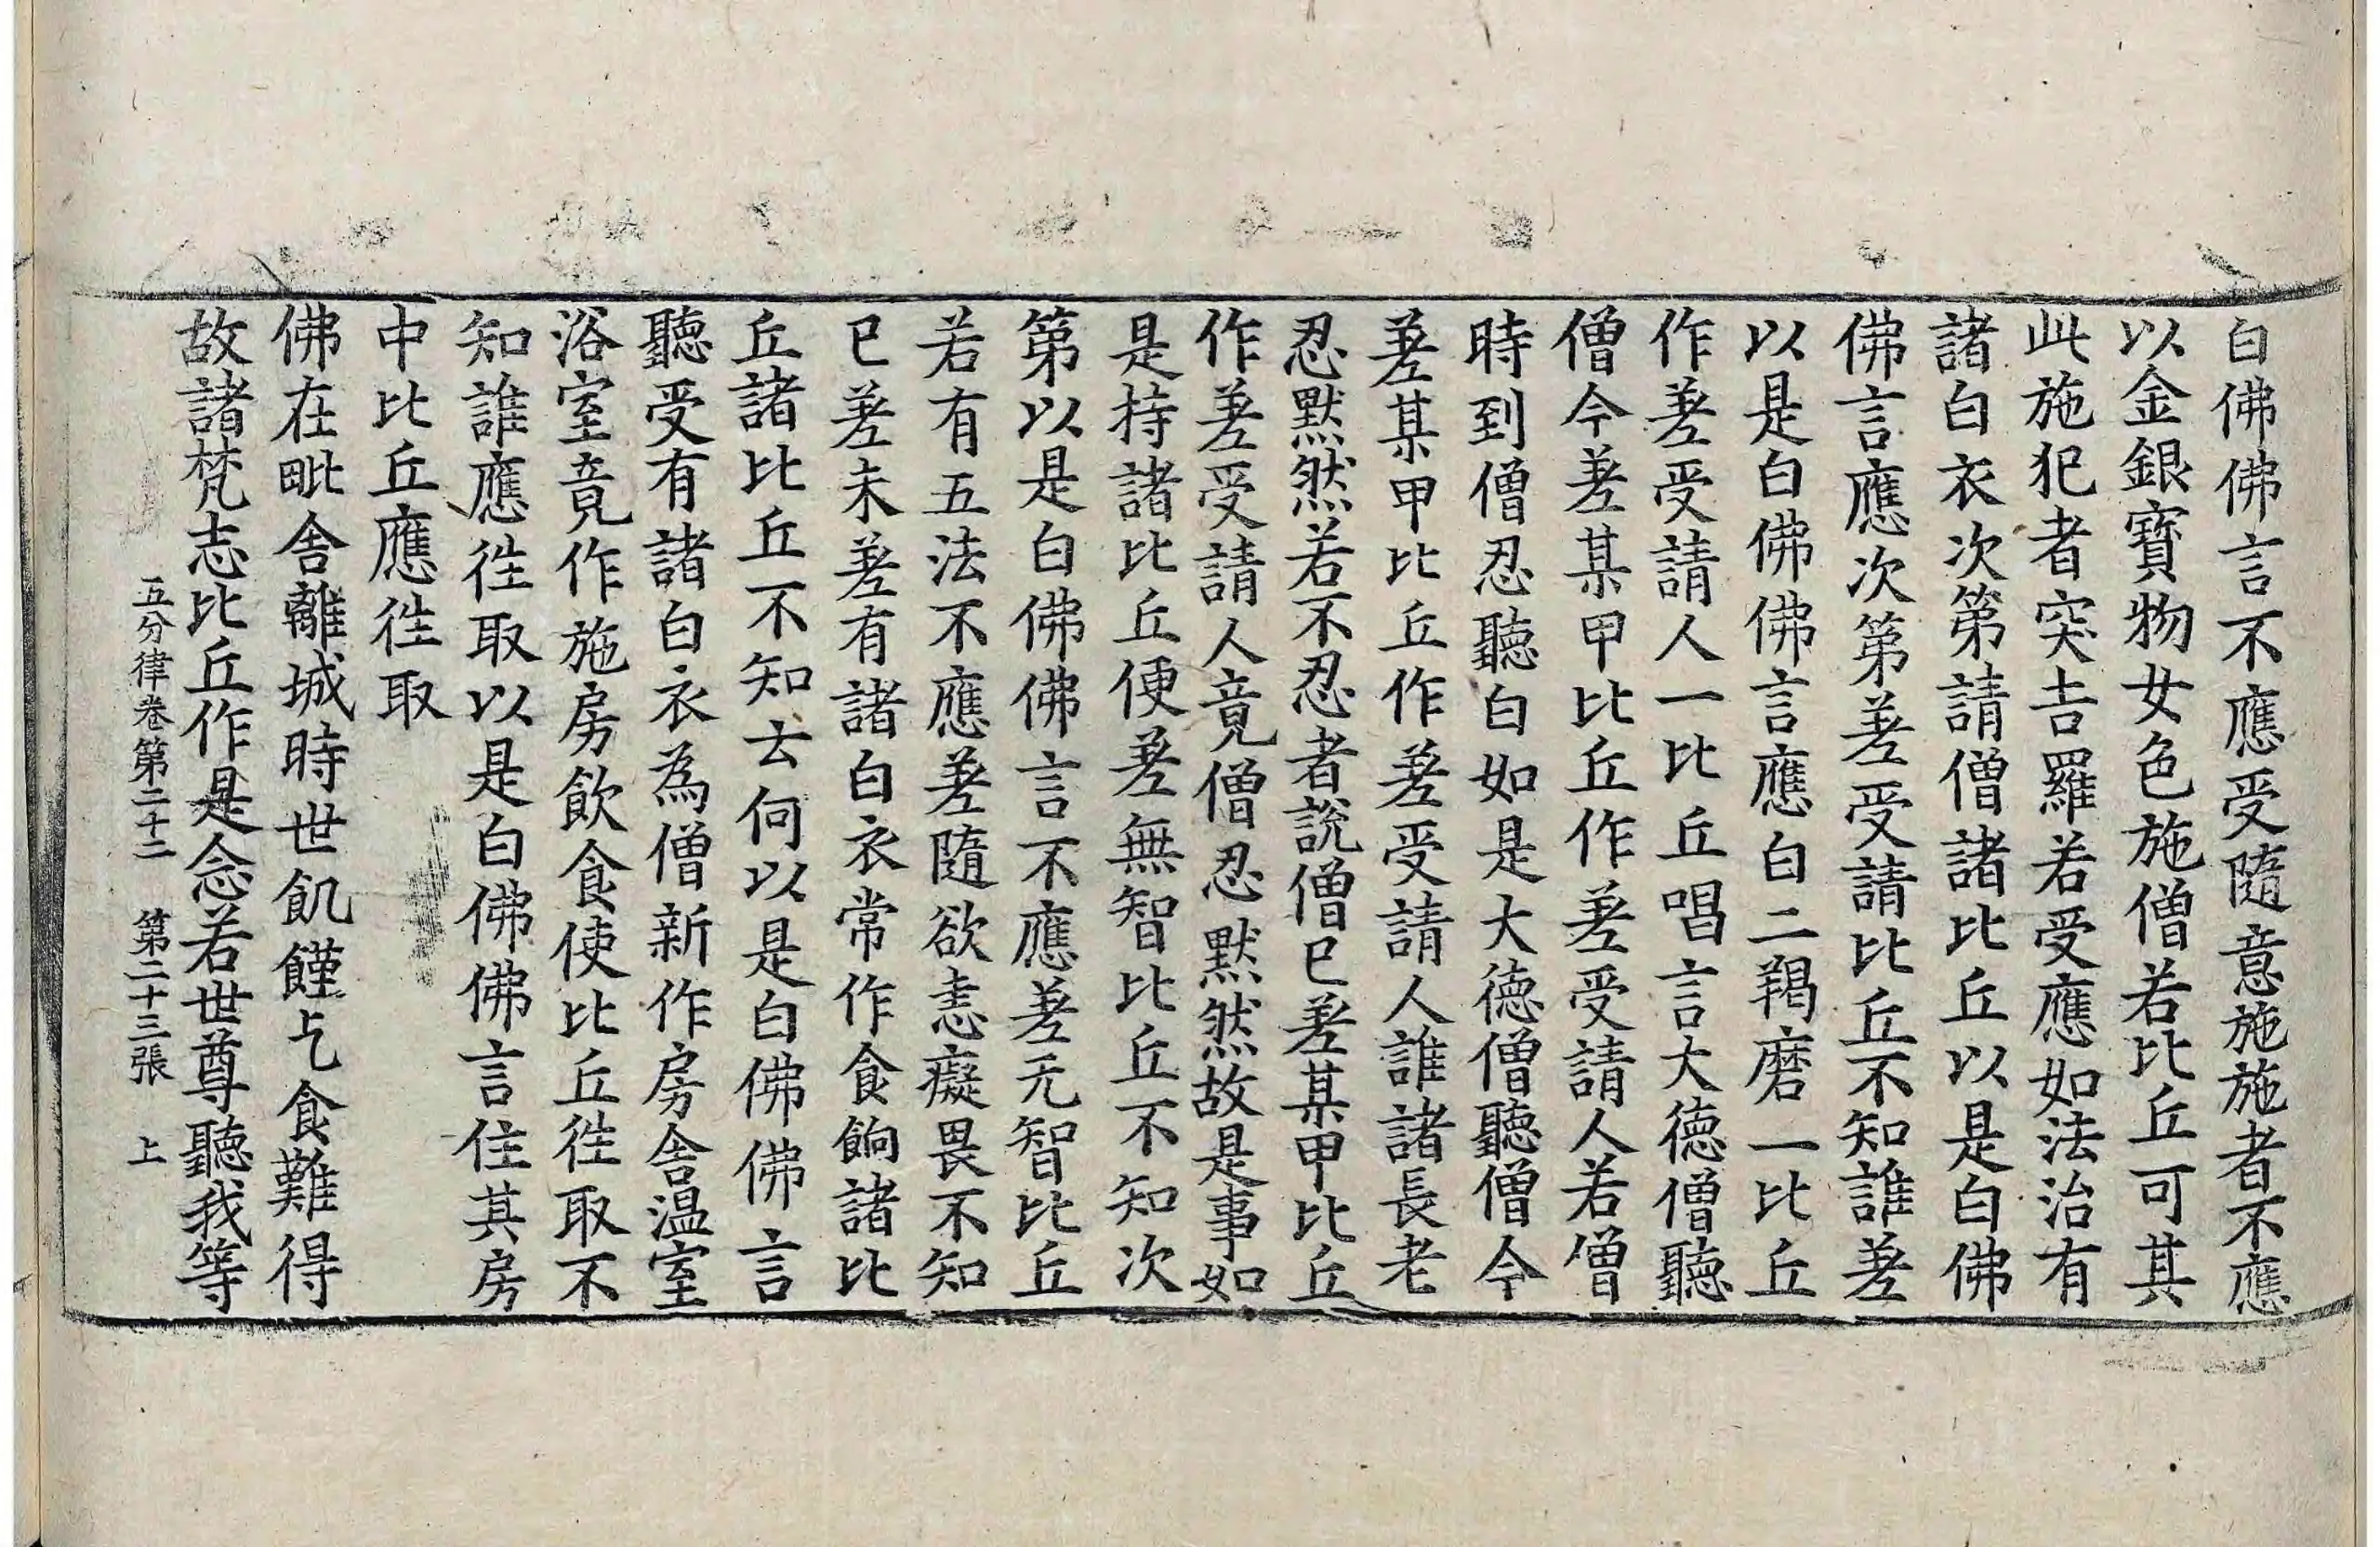 白佛佛言不應受隨意施施者不應
以金銀寶物女色施僧若比丘可其
此施犯者突吉羅若受應如法治有
諸白衣次第請僧諸比丘以是白佛
佛言應次第差受請比丘不知誰差
以是白佛佛言應白二羯磨一比丘
作差受請人一比丘唱言大德僧聽
僧今差某甲比丘作差受請人若僧
時到僧忍聽白如是大德僧聽僧今
差某甲比丘作差受請人誰諸長老
忍默然若不忍者說僧已差某甲比丘
作差受請人竟僧忍默然故是事如
是持諸比丘便差無智比丘不知次
第以是白佛佛言不應差无智比丘
若有五法不應差隨欲恚癡畏不知
已差未差有諸白衣常作食餉諸比
丘諸比丘不知云何以是白佛佛言
聽受有諸白衣為僧新作房舍温室
浴室竟作施房飲食使比丘徃取不
知誰應徃取以是白佛佛言住其房
中比丘應徃取
佛在毗舍離城時世飢饉乞食難得
故諸梵志比丘作是念若世尊聽我等
五分律卷第二十二 第二十三張 上